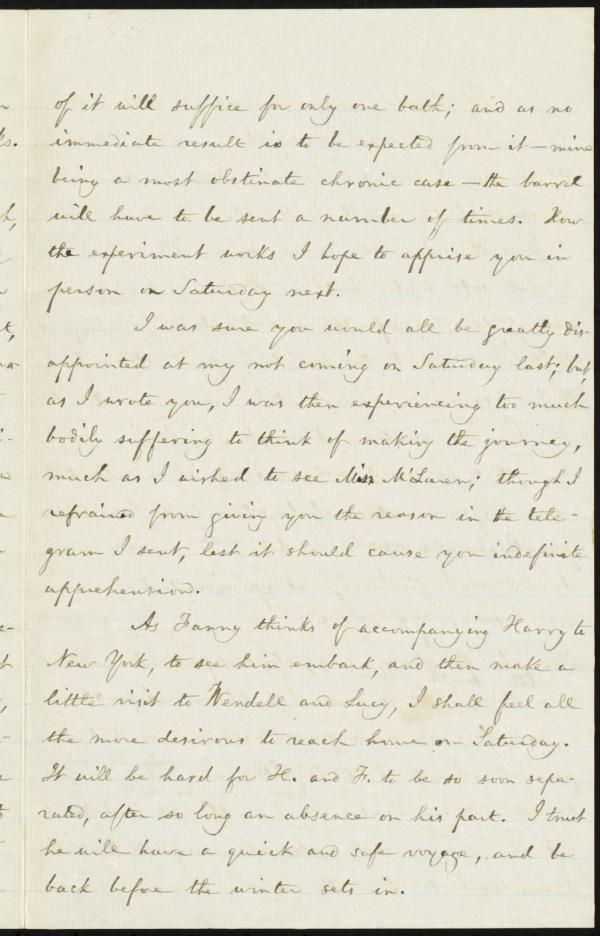 of it will suffice for only one bath; and as no
immediate result is to be expected from it — mine
being a most obstinate chronic case — the barrel
will have to be sent a number of times. How
the experiment works I hope to apprise you in
person on Saturday next.
I was sure you would all be greatly dis-
appointed at my not coming on Saturday last; but,
as I wrote you, I was then experiencing too much
bodily suffering to think of making the journey,
much as I wished to see Miss McLaren; though I
refrained from giving you the reason in the tele-
gram I sent, lest it should cause you indefinite
apprehension.
As Fanny thinks of accompanying Harry to
New York, to see him embark, and then make a
little visit to Wendell and Lucy, I shall feel all
the more desirous to reach home on Saturday.
It will be hard for H. and F. to be so soon sepa-
rated, after so long an absence on his part. I trust
he will have a quick and safe voyage, and be
back before the winter sets in.